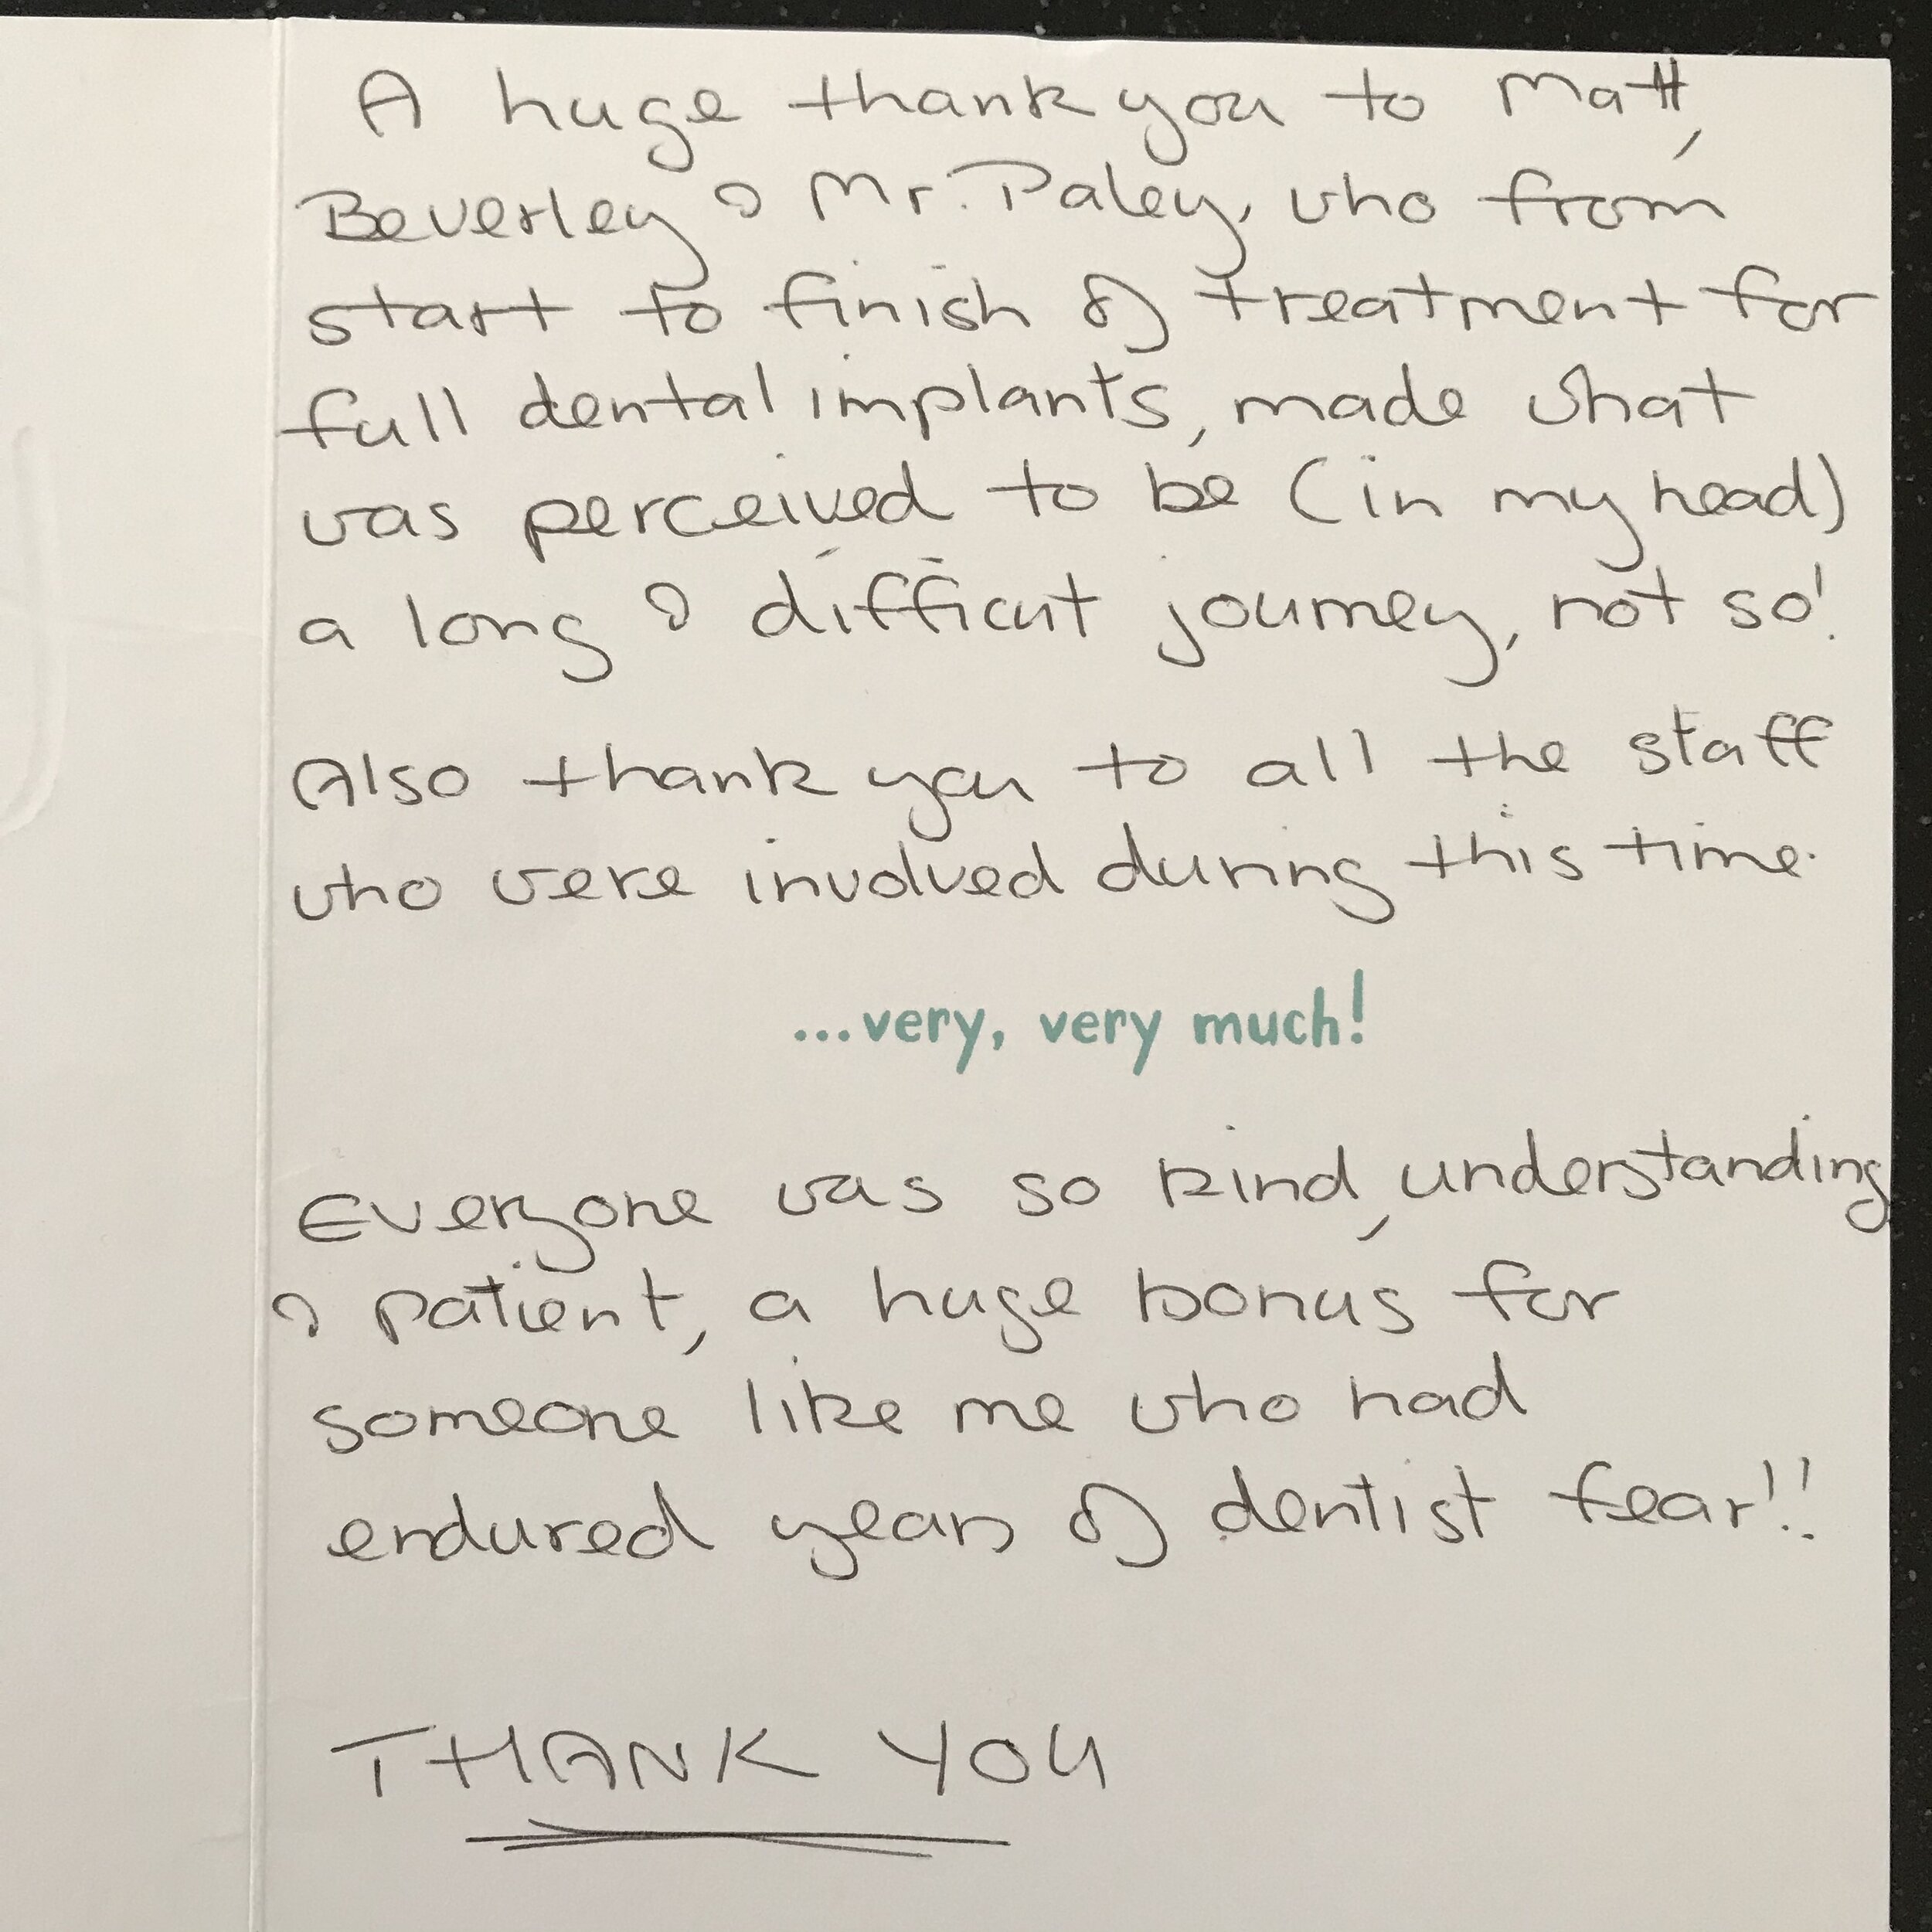 A huge thank you to Matt,
Beverley & Mr. Paley, who from
start to finish of treatment for
full dental implants, made what
was perceived to be (in my head)
a long & difficult journey, not so!
Also thank you to all the staff
who were involved during this time.
...very, very much!
Everyone was so kind, understanding
& patient, a huge bonus for
someone like me who had
endured years of dentist fear!!
THANK YOU